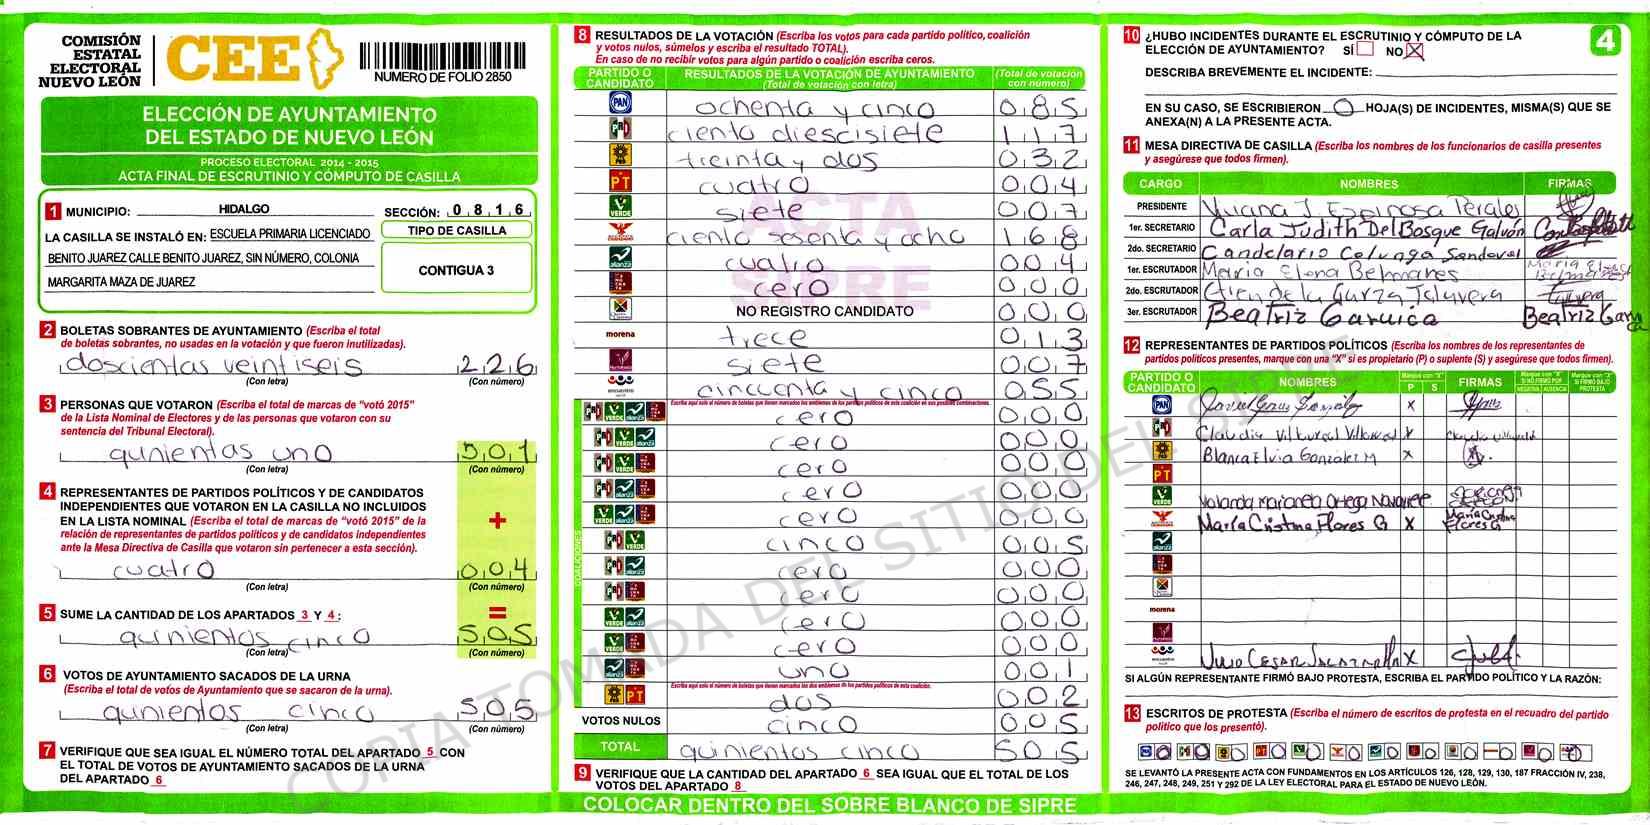 COMISIÓN
ESTATAL
ELECTORAL
NUEVO LEÓN
CEE
NUMERO DE FOLIO 2850
ELECCIÓN DE AYUNTAMIENTO
DEL ESTADO DE NUEVO LEÓN
PROCESO ELECTORAL 2014 - 2015
ACTA FINAL DE ESCRUTINIO Y CÓMPUTO DE CASILLA
1 MUNICIPIO: HIDALGO SECCIÓN: 0 8 1 6
LA CASILLA SE INSTALÓ EN: ESCUELA PRIMARIA LICENCIADO
BENITO JUAREZ CALLE BENITO JUAREZ, SIN NÚMERO, COLONIA
MARGARITA MAZA DE JUAREZ
TIPO DE CASILLA
CONTIGUA 3
2 BOLETAS SOBRANTES DE AYUNTAMIENTO (Escriba el total
de boletas sobrantes, no usadas en la votación y que fueron inutilizadas).
doscientas veintiseis 2 2 6
(Con letra) (Con número)
3 PERSONAS QUE VOTARON (Escriba el total de marcas de “votó 2015”
de la Lista Nominal de Electores y de las personas que votaron con su
sentencia del Tribunal Electoral).
qunientas uno 5 0 1
(Con letra) (Con número)
4 REPRESENTANTES DE PARTIDOS POLÍTICOS Y DE CANDIDATOS
INDEPENDIENTES QUE VOTARON EN LA CASILLA NO INCLUIDOS
EN LA LISTA NOMINAL (Escriba el total de marcas de “votó 2015” de la
relación de representantes de partidos políticos y de candidatos independientes
ante la Mesa Directiva de Casilla que votaron sin pertenecer a esta sección).
+
cuatro 0 0 4
(Con letra) (Con número)
=
5 SUME LA CANTIDAD DE LOS APARTADOS 3 Y 4:
quinientos cinco 5 0 5
(Con letra) (Con número)
6 VOTOS DE AYUNTAMIENTO SACADOS DE LA URNA
(Escriba el total de votos de Ayuntamiento que se sacaron de la urna).
qunientos cinco 5 0 5
(Con letra) (Con número)
7 VERIFIQUE QUE SEA IGUAL EL NÚMERO TOTAL DEL APARTADO 5 CON
EL TOTAL DE VOTOS DE AYUNTAMIENTO SACADOS DE LA URNA
DEL APARTADO 6
8 RESULTADOS DE LA VOTACIÓN (Escriba los votos para cada partido político, coalición
y votos nulos, súmelos y escriba el resultado TOTAL).
En caso de no recibir votos para algún partido o coalición escriba ceros.
PARTIDO O CANDIDATO RESULTADOS DE LA VOTACIÓN DE AYUNTAMIENTO (Total de votación con letra) (Total de votación con número)
PAN ochenta y cinco 0 8 5
PRI ciento diescisiete 1 1 7
PRD treinta y dos 0 3 2
PT cuatro 0 0 4
VERDE siete 0 0 7
ciento sesenta y ocho 1 6 8
alianza cuatro 0 0 4
cero 0 0 0
NO REGISTRO CANDIDATO 0 0 0
morena trece 0 1 3
siete 0 0 7
encuentro cincuenta y cinco 0 5 5
Escriba aquí solo el número de boletas que tienen marcados los emblemas de los partidos políticos de esta coalición en sus posibles combinaciones.
COALICIONES
cero 0 0 0
cero 0 0 0
cero 0 0 0
cero 0 0 0
cero 0 0 0
cinco 0 0 5
cero 0 0 0
cero 0 0 0
cero 0 0 0
cero 0 0 0
uno 0 0 1
Escriba aquí solo el número de boletas que tienen marcados los dos emblemas de los partidos políticos de esta coalición.
dos 0 0 2
VOTOS NULOS cinco 0 0 5
TOTAL quinientos cinco 5 0 5
9 VERIFIQUE QUE LA CANTIDAD DEL APARTADO 6 SEA IGUAL QUE EL TOTAL DE LOS
VOTOS DEL APARTADO 8
COLOCAR DENTRO DEL SOBRE BLANCO DE SIPRE
ACTA
SIPRE
COPIA TOMADA DEL SITIO DEL SIPRE
10 ¿HUBO INCIDENTES DURANTE EL ESCRUTINIO Y CÓMPUTO DE LA
ELECCIÓN DE AYUNTAMIENTO? SÍ NO X
4
DESCRIBA BREVEMENTE EL INCIDENTE:
EN SU CASO, SE ESCRIBIERON 0 HOJA(S) DE INCIDENTES, MISMA(S) QUE SE
ANEXA(N) A LA PRESENTE ACTA.
11 MESA DIRECTIVA DE CASILLA (Escriba los nombres de los funcionarios de casilla presentes
y asegúrese que todos firmen).
CARGO NOMBRES FIRMAS
PRESIDENTE J. Espinosa Perales
1er. SECRETARIO Carla Judith Del Bosque Galván
2do. SECRETARIO Candelario Colunga Sandoval
1er. ESCRUTADOR Maria Elena Belmares
2do. ESCRUTADOR de la Garza Talavera
3er. ESCRUTADOR Beatriz Garnica Beatriz
12 REPRESENTANTES DE PARTIDOS POLÍTICOS (Escriba los nombres de los representantes de
partidos políticos presentes, marque con una “X” si es propietario (P) o suplente (S) y asegúrese que todos firmen).
PARTIDO O CANDIDATO NOMBRES Marque con “X” P S FIRMAS
PAN X
PRI Claudia Villarreal Villarreal X
PRD Blanca Elvia Gonzalez M X
PT
VERDE Yolanda Marianela Ortega
María Cristina Flores G X María Cristina Flores G
alianza
morena
encuentro Julio Cesar X
SI ALGÚN REPRESENTANTE FIRMÓ BAJO PROTESTA, ESCRIBA EL PARTIDO POLÍTICO Y LA RAZÓN:
13 ESCRITOS DE PROTESTA (Escriba el número de escritos de protesta en el recuadro del partido
político que los presentó).
SE LEVANTÓ LA PRESENTE ACTA CON FUNDAMENTOS EN LOS ARTÍCULOS 126, 128, 129, 130, 187 FRACCIÓN IV, 238,
246, 247, 248, 249, 251 Y 292 DE LA LEY ELECTORAL PARA EL ESTADO DE NUEVO LEÓN.